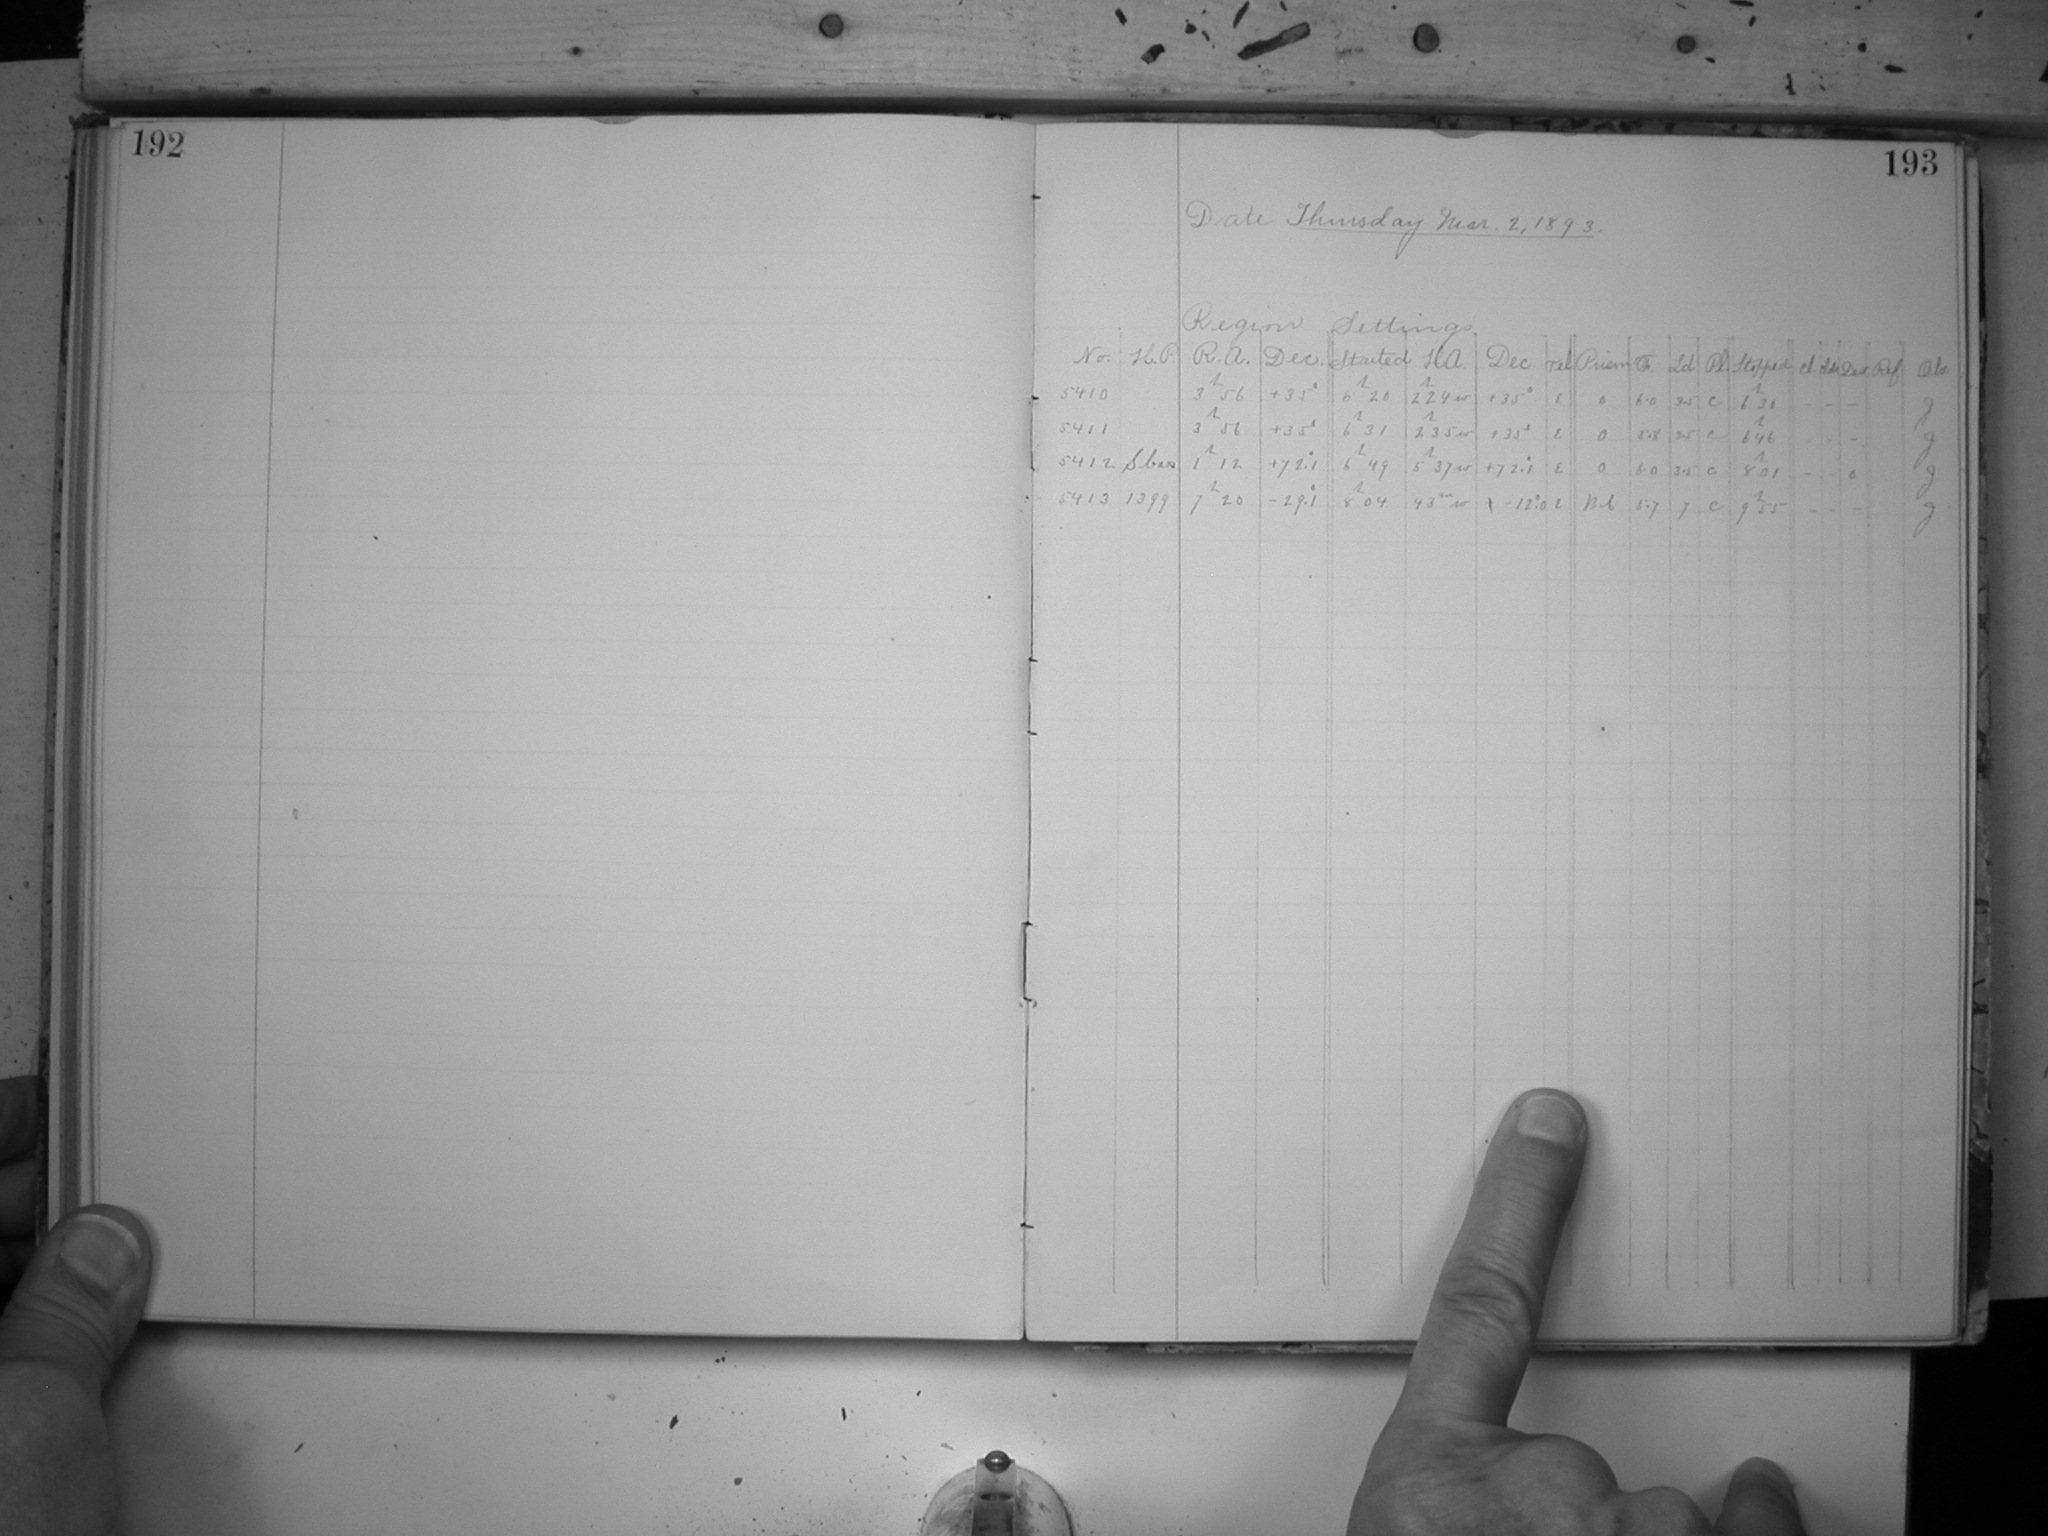 192
193
Date Thursday Mar. 2, 1893.
Region Settings
No. H.P. R.A. Dec. Started H.A. Dec. Tel Prism Ld Pl. Stopped Cl Dew Ref Obs.
5410 3h 56 +35° 6h 20 2h24w +35° E 0 6.0 35 C 6h 30 - - - g
5411 3h 56 +35° 6h 31 2h35w +35° E 0 5.8 35 C 6h46 - - - g
5412 1h 12 +72.°1 6h 49 5h37w +72.°1 E 0 6.0 35 C 8h01 - - 0 g
5413 1399 7h 20 -29.°1 8h 04 43m w -12.°0 E 5.7 7 C 9h55 - - - g